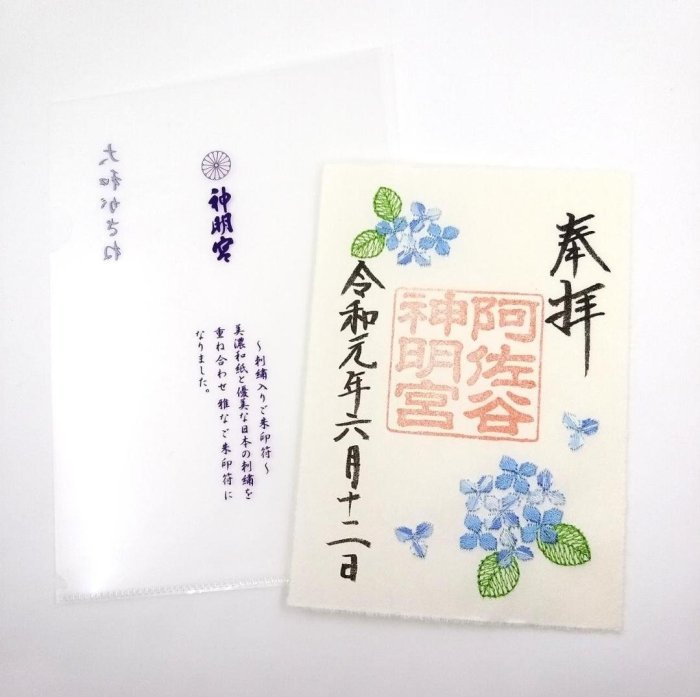 奉拝
阿佐谷
神明宮
令和元年六月十二日
神明宮
～刺繍入りご朱印符～
美濃和紙と優美な日本の刺繍を
重ね合わせ 雅なご朱印符に
なりました。
大和がさね